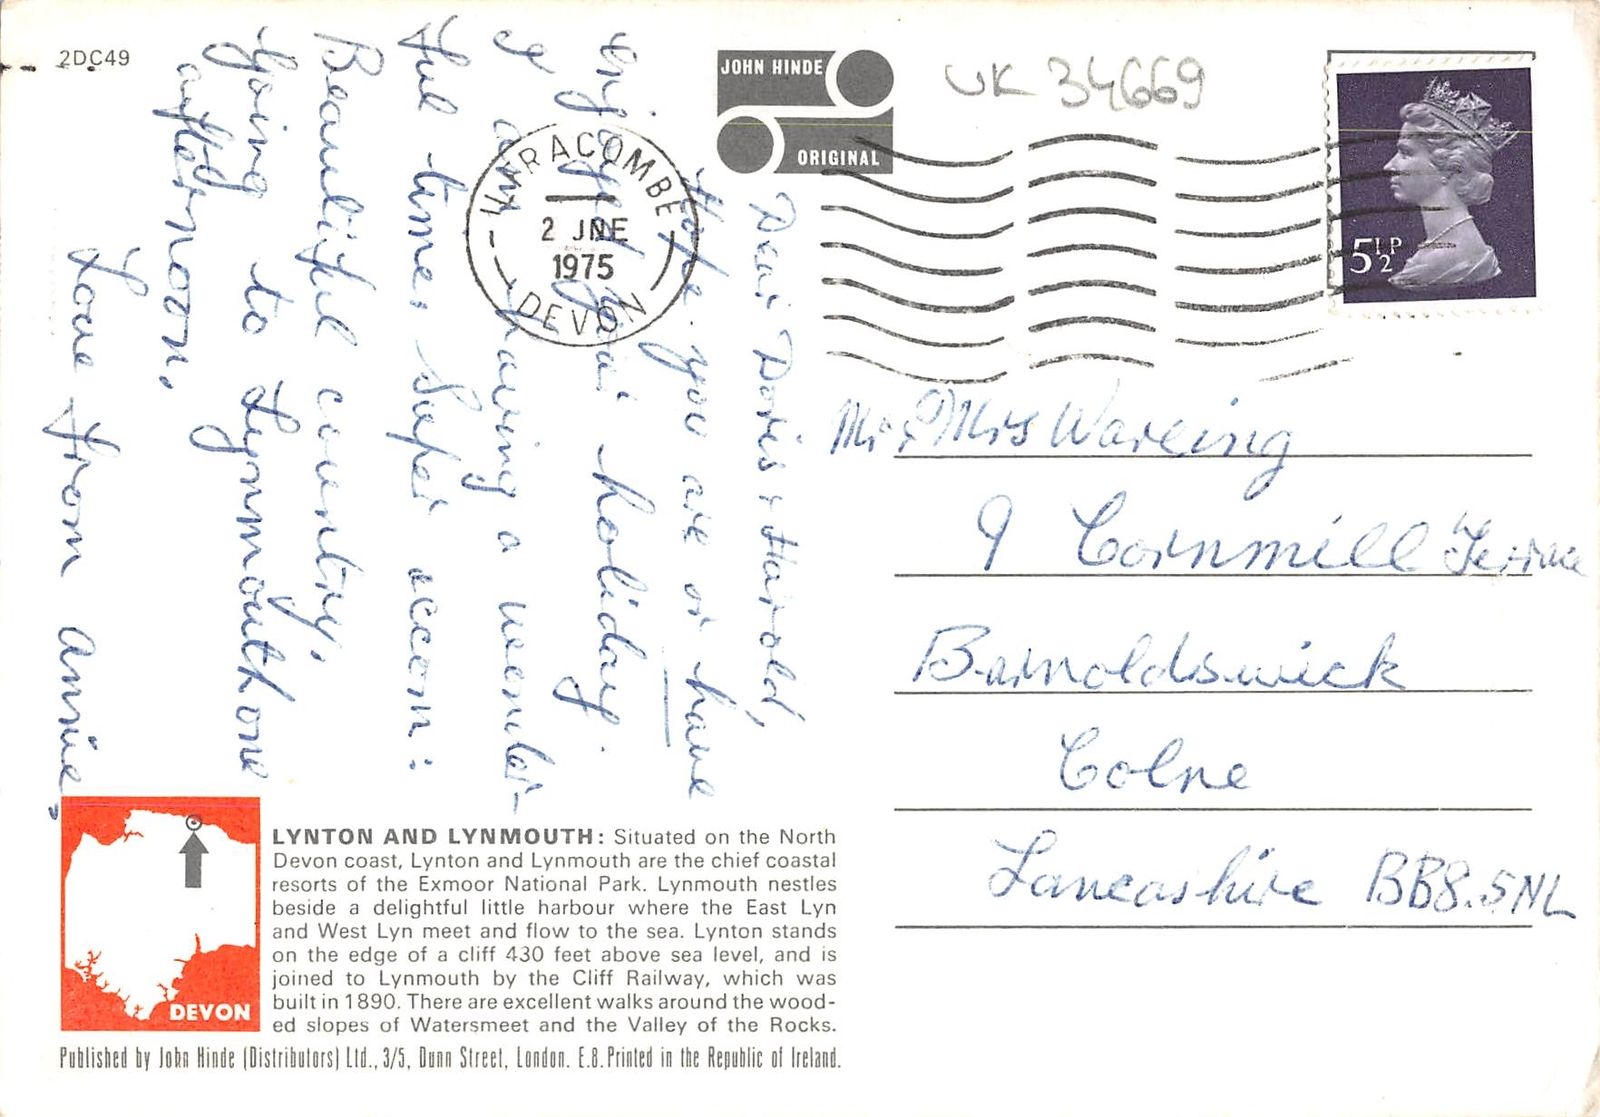 2DC49
JOHN HINDE
ORIGINAL
UK 34669
ILFRACOMBE
2 JNE
1975
DEVON
5½P
Dear Doris & Harold,
Hope you are or have
enjoyed your holiday.
I am having a wonder-
ful time. Super accom:
Beautiful country,
Going to Lynmouth one
afternoon.
Love from Annie,
Mr & Mrs Wareing
9 Cornmill Terrace
Barnoldswick
Colne
Lancashire BB8.5NL
LYNTON AND LYNMOUTH: Situated on the North
Devon coast, Lynton and Lynmouth are the chief coastal
resorts of the Exmoor National Park. Lynmouth nestles
beside a delightful little harbour where the East Lyn
and West Lyn meet and flow to the sea. Lynton stands
on the edge of a cliff 430 feet above sea level, and is
joined to Lynmouth by the Cliff Railway, which was
built in 1890. There are excellent walks around the wood-
ed slopes of Watersmeet and the Valley of the Rocks.
DEVON
Published by John Hinde (Distributors) Ltd., 3/5, Dunn Street, London. E.8. Printed in the Republic of Ireland.